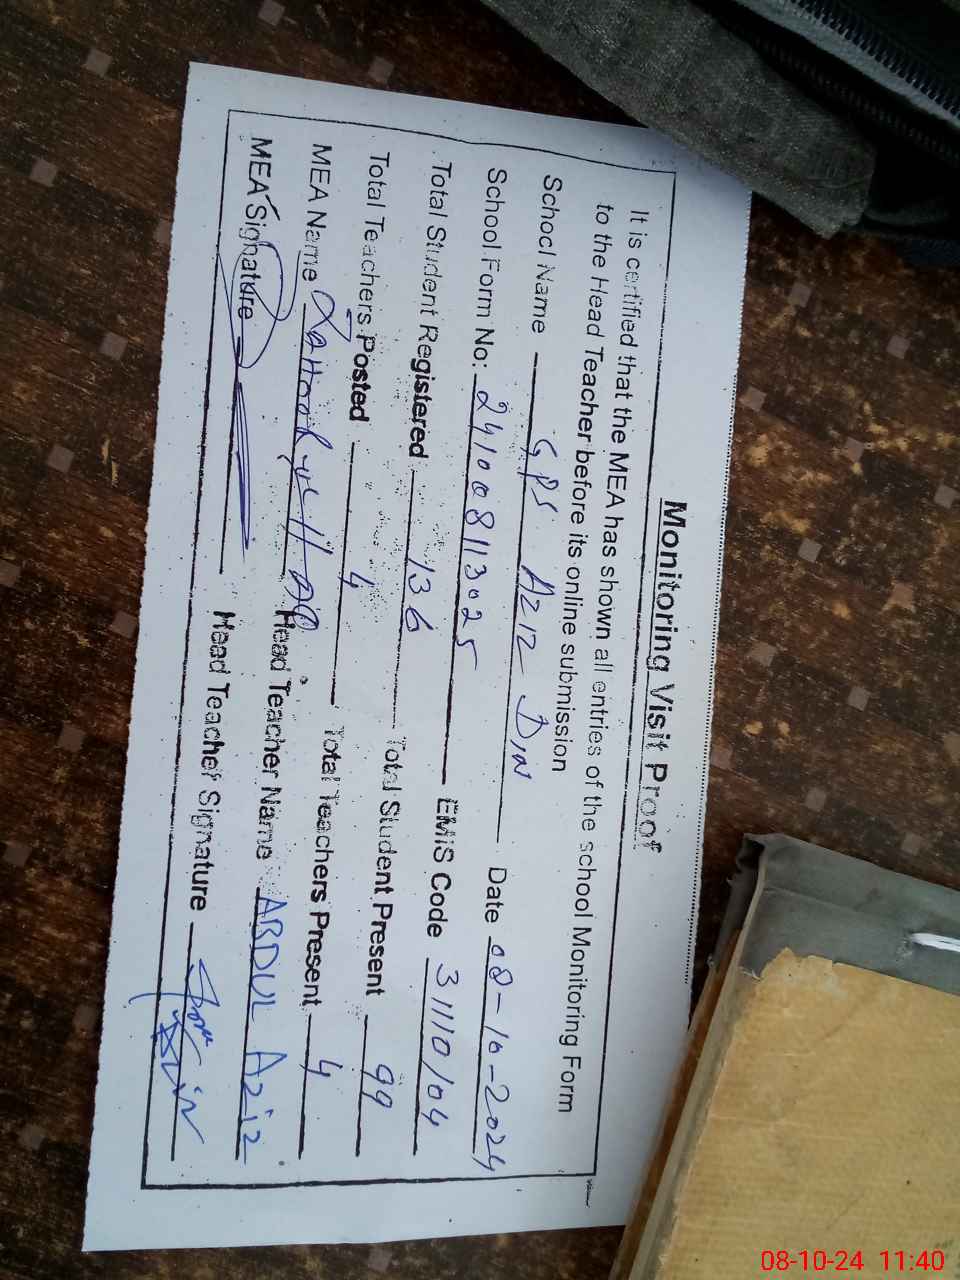 Monitoring Visit Proof
It is certified that the MEA has shown all entries of the school Monitoring Form
to the Head Teacher before its online submission
School Name GPS AZIZ DIN Date 08-10-2024
School Form No: 241008113025 EMIS Code 31110104
Total Student Registered 136 Total Student Present 99
Total Teachers Posted 4 Total Teachers Present 4
MEA Name Head Teacher Name ABDUL Aziz
MEA Signature Head Teacher Signature
08-10-24 11:40